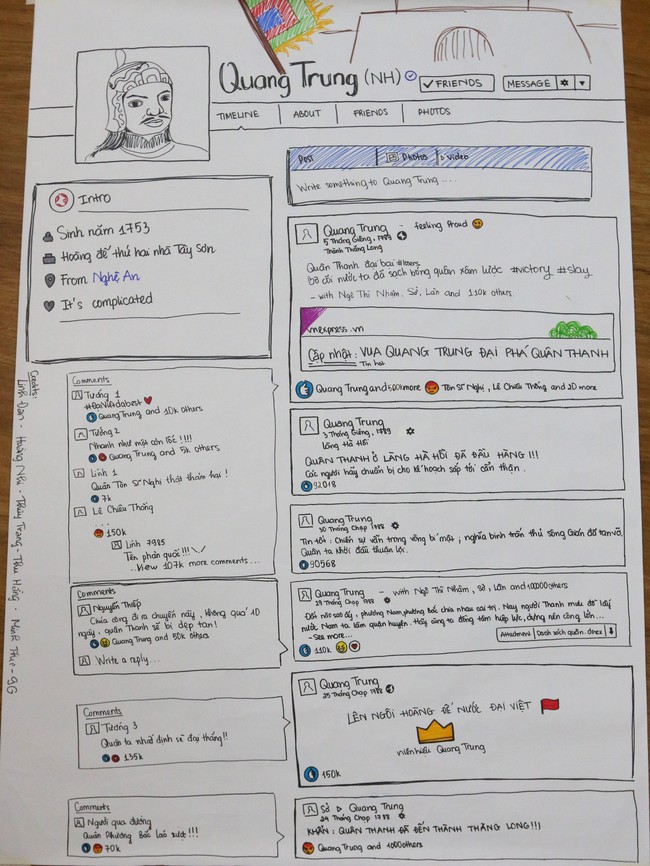 Quang Trung (NH)
✓ FRIENDS
MESSAGE
TIMELINE
ABOUT
FRIENDS
PHOTOS
Intro
Sinh năm 1753
Hoàng đế thứ hai nhà Tây Sơn
From Nghệ An
It's complicated
Post
Photos
video
Write something to Quang Trung ...
Quang Trung - feeling Proud
5 Tháng Giêng, 1789
Thành Thăng Long
Quân Thanh đại bại #losers
Bờ cõi nước ta đã sạch bóng quân xâm lược #victory #slay
- with Ngô Thì Nhậm, Sở, Lân and 110k others
vnexpress.vn
Cập nhật: VUA QUANG TRUNG ĐẠI PHÁ QUÂN THANH
Tin hot
Quang Trung and 500k more
Tôn Sĩ Nghị, Lê Chiêu Thống and 20 more
Comments
Tướng 1
#ĐạiViệtdabest
Quang Trung and 10k others
Tướng 2
Nhanh như một cơn lốc !!!!
Quang Trung and 5k others
Lính 1
Quân Tôn Sĩ Nghị thật thảm hại !
7k
Lê Chiêu Thống
...
150k
Lính 7985
Tên phản quốc!!!
...View 107k more comments...
Quang Trung
3 Tháng Giêng, 1789
Làng Hà Hồi
QUÂN THANH Ở LÀNG HÀ HỒI ĐÃ ĐẦU HÀNG !!!
Các ngươi hãy chuẩn bị cho kế hoạch sắp tới cẩn thận.
92018
Quang Trung
30 Tháng Chạp 1788
Tin tốt: Chiến sự vẫn trong vòng bí mật; nghĩa binh trấn thủ sông Gián đã tan vỡ,
Quân ta khởi đầu thuận lợi.
90568
Comments
Nguyễn Thiếp
Chúa công đi ra chuyến này, không quá 10
ngày, quân Thanh sẽ bị dẹp tan!
Quang Trung and 50k others
Write a reply...
Quang Trung - with Ngô Thì Nhậm, Sở, Lân and 100000 others
29 Tháng Chạp 1788
Đất nào sao ấy, phương Nam, phương Bắc chia nhau cai trị. Nay người Thanh mưu đồ lấy
nước Nam ta làm quận huyện. Hãy cùng ta đồng tâm hiệp lực, dựng nên công lớn...
-See more...
110k
Attachment
Danh sách quân.docx
Quang Trung
25 Tháng Chạp 1788
LÊN NGÔI HOÀNG ĐẾ NƯỚC ĐẠI VIỆT
niên hiệu Quang Trung
150k
Comments
Tướng 3
Quân ta nhất định sẽ đại thắng!!
135k
Comments
Người qua đường
Quân Phương Bắc láo xược!!!
70k
Sở ▷ Quang Trung
24 Tháng Chạp 1788
KHẨN: QUÂN THANH ĐÃ ĐẾN THÀNH THĂNG LONG!!!
Quang Trung and 1000 others
Credits:
Linh Đan - Hoàng Nhi - Thùy Trang - Thu Hồng - Minh Thư - 9G